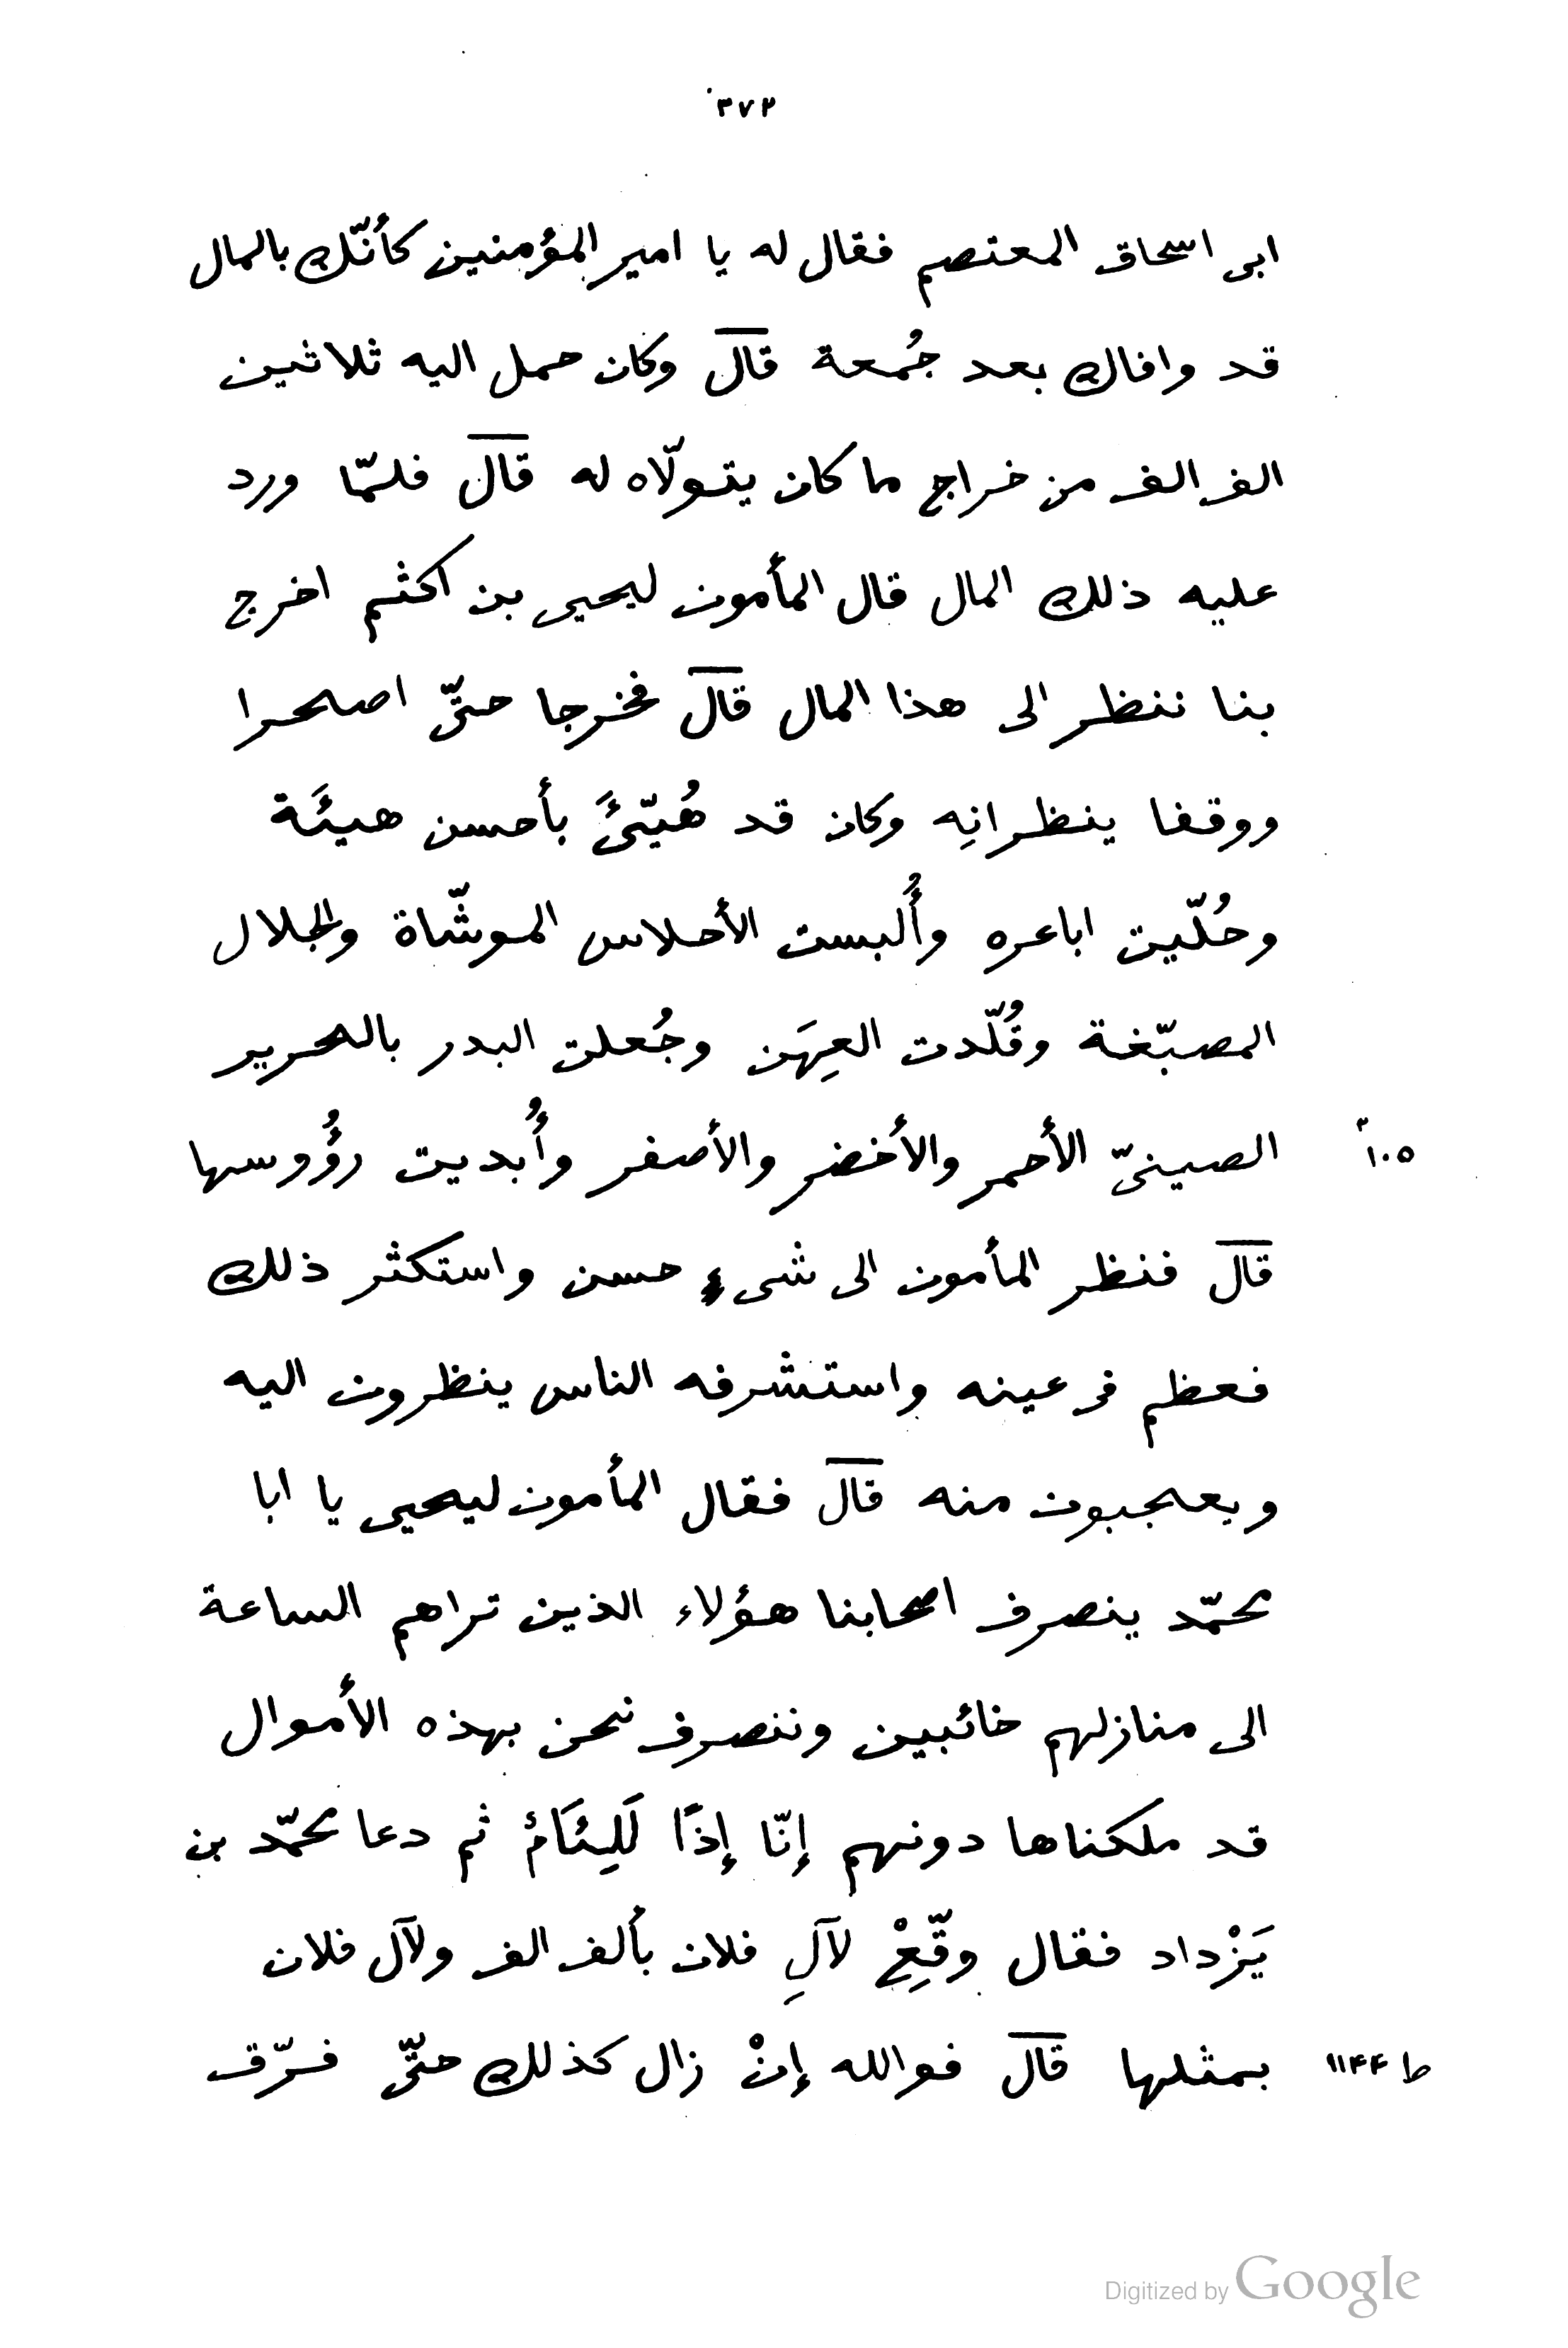 ٣٧٢
ابى اسحاق المعتصم فقال له يا امير المؤمنين كأنّك بالمال
قد وافاك بعد جُمعة قال وكان حمل اليه ثلاثين
الف الف من خراج ما كان يتولّاه له قال فلمّا ورد
عليه ذلك المال قال المأمون ليحيى بن اكثم اخرج
بنا ننظر الى هذا المال قال فخرجا حتّى اصحرا
ووقفا ينظرانِه وكان قد هُيّئَ بأحسن هيئَة
وحُلّيت اباعره وأُلبست الأحلاس الموشّاة والجلال
المصبّغة وقُلّدت العِهَن وجُعلت البدر بالحرير
الصينىّ الأحمر والأخضر والأصفر وأُبديت رؤُوسها
١٠٥
قال فنظر المأمون الى شىء حسن واستكثر ذلك
فعظم فى عينه واستشرفه الناس ينظرون اليه
ويعجبون منه قال فقال المأمون ليحيى يا ابا
محمّد ينصرف اصحابنا هؤلاء الذين تراهم الساعة
الى منازلهم خائبين وننصرف نحن بهذه الأموال
قد ملكناها دونهم إنّا إذًا لَلِئَامٌ ثم دعا محمّد بن
يَزْداد فقال وقّعِْ لآلِ فلان بألف الف ولآل فلان
بمثلها قال فوالله إنْ زال كذلك حتّى فرّق
ط ١١۴۴
Digitized by Google